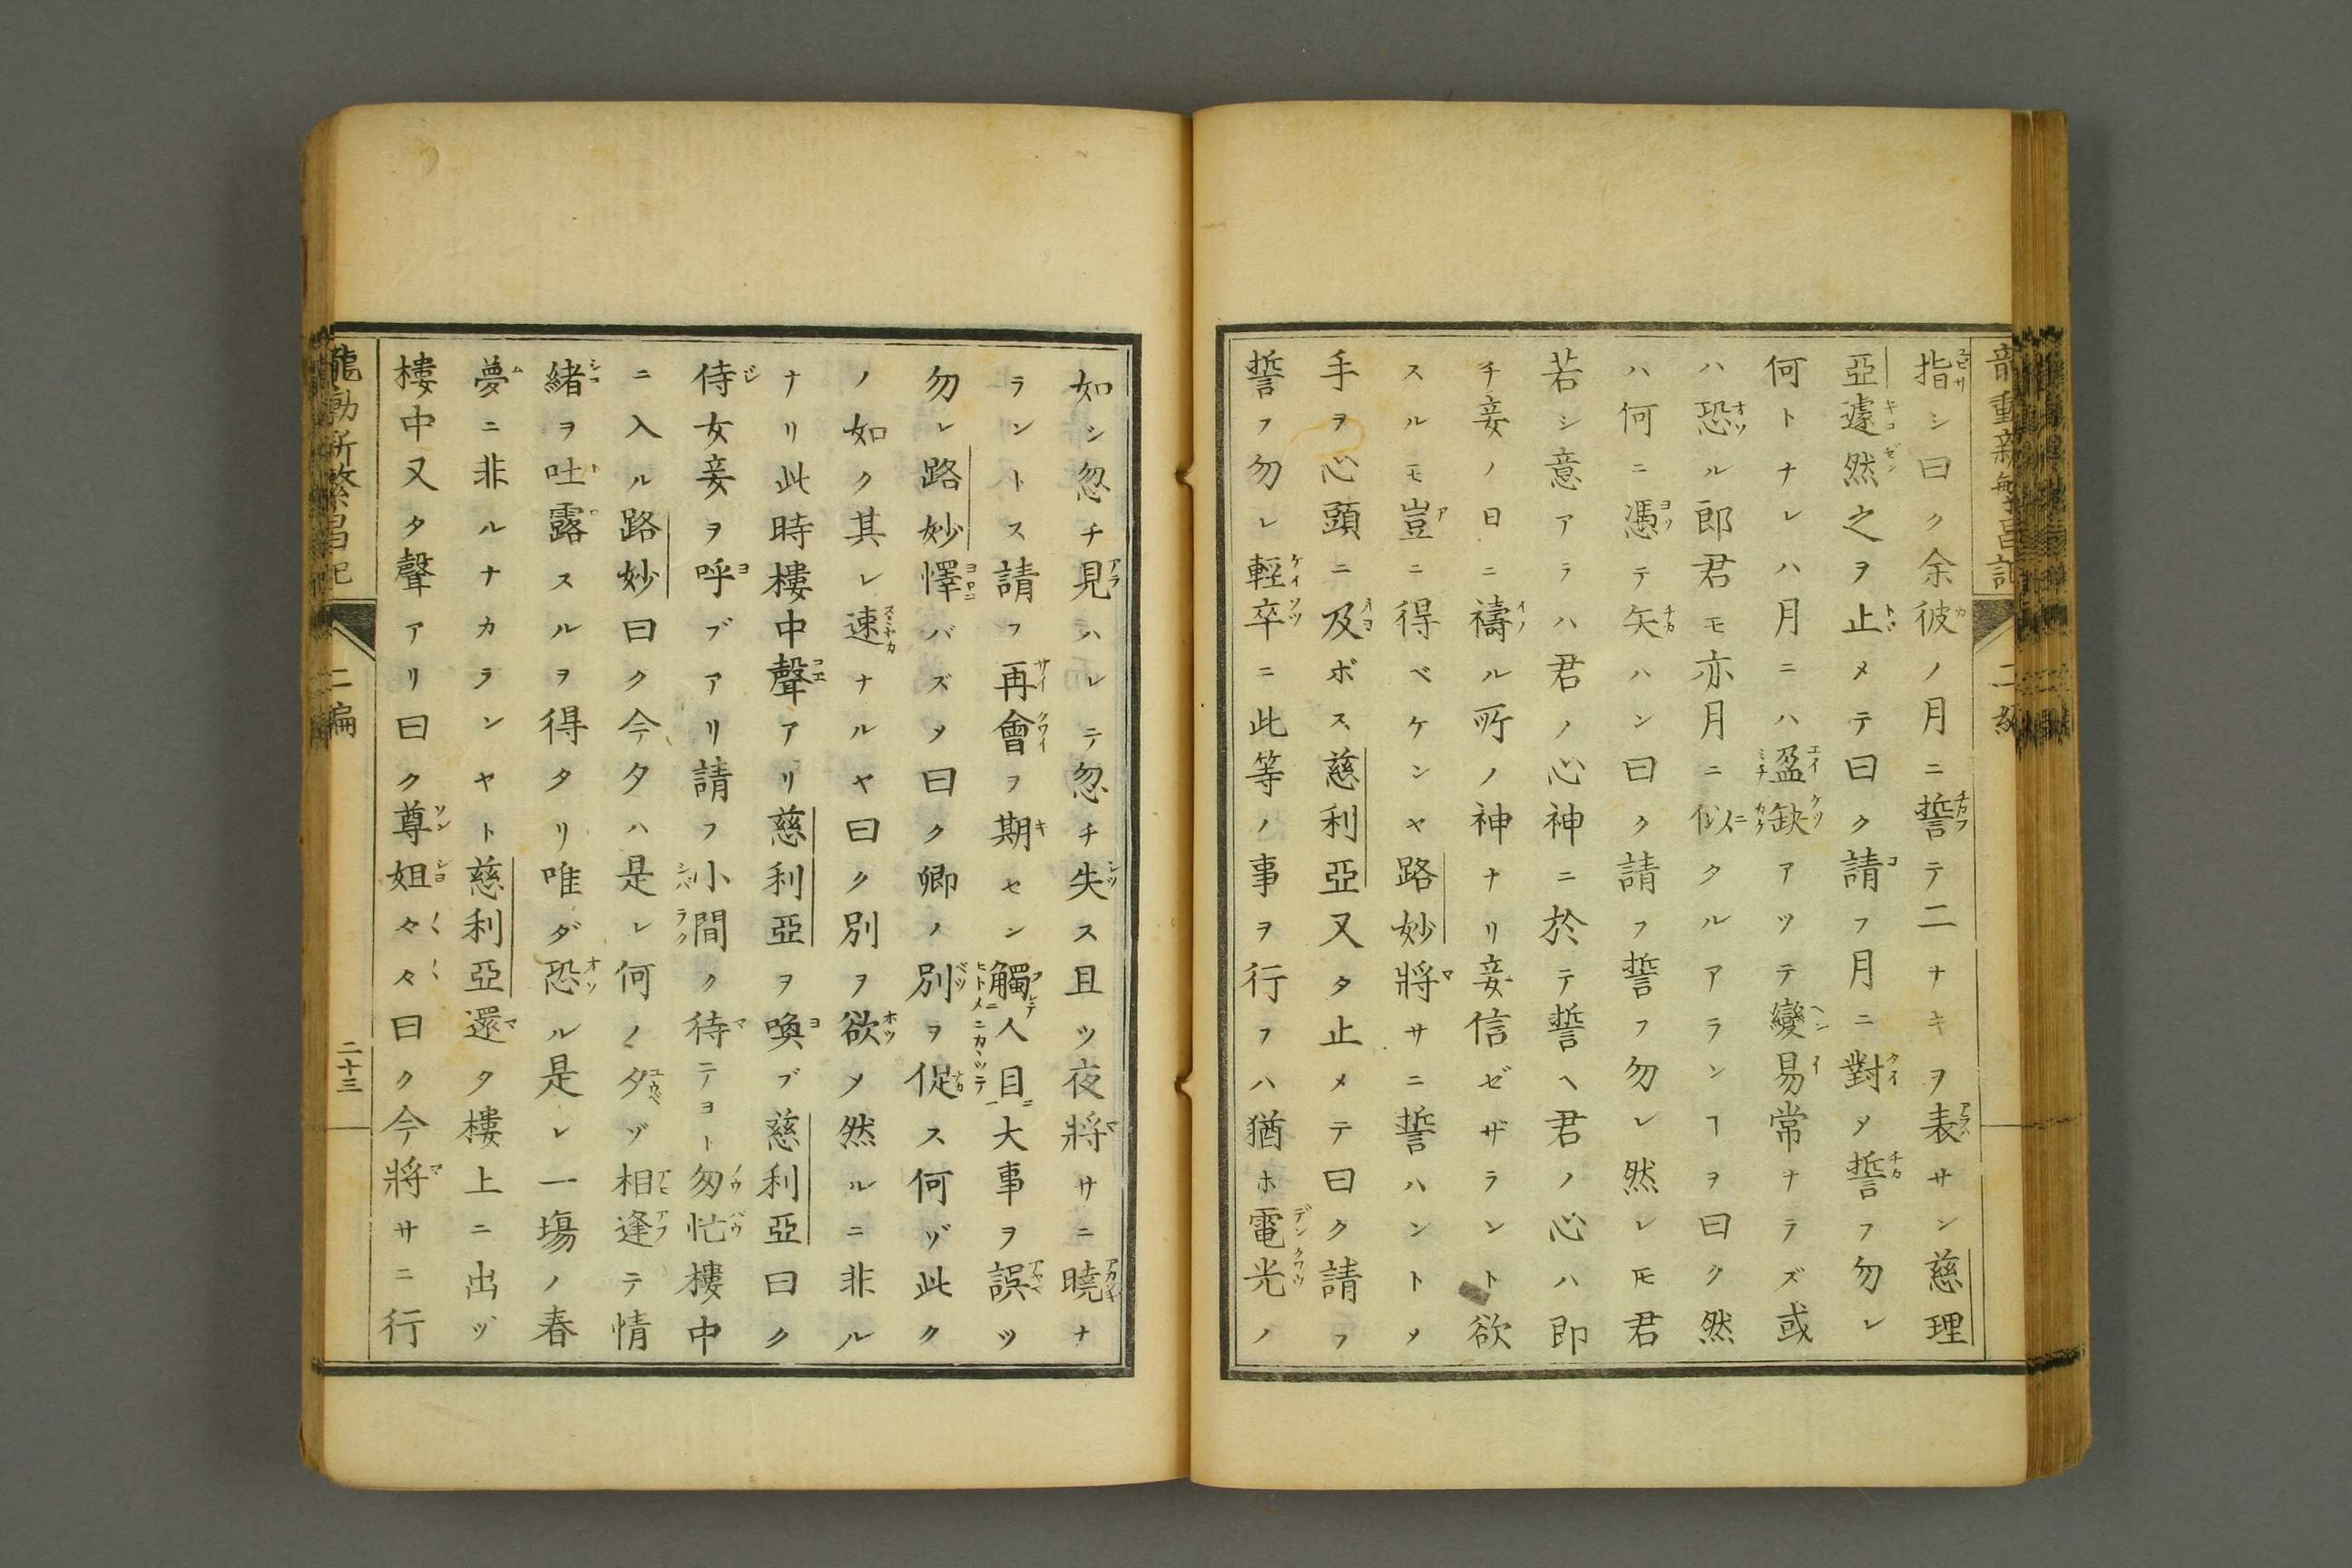 指シ曰ク余彼ノ月ニ誓テ二ナキヲ表サン慈理
亞遽然之ヲ止メテ曰ク請フ月ニ對メ誓フ勿レ
何トナレハ月ニハ盈缺アツテ變易常ナラズ或
ハ恐ル郎君モ亦月ニ似タルアランヿヲ曰ク然
ハ何ニ憑テ矢ハン曰ク請フ誓フ勿レ然レ𪜈君
若シ意アラハ君ノ心神ニ於テ誓ヘ君ノ心ハ即
チ妾ノ日ニ禱ル所ノ神ナリ妾信ゼザラント欲
スルモ豈ニ得ベケンヤ路妙將サニ誓ハントメ
手ヲ心頭ニ及ボス慈利亞又タ止メテ曰ク請フ
誓フ勿レ輕卒ニ此等ノ事ヲ行フハ猶ホ電光ノ
如シ忽チ見ハレテ忽チ失ス且ツ夜將サニ曉ナ
ラントス請フ再會ヲ期セン觸人目大事ヲ誤ツ
勿レ路妙懌バズメ曰ク卿ノ別ヲ促ス何ヅ此ク
ノ如ク其レ速ナルヤ曰ク別ヲ欲メ然ルニ非ル
ナリ此時樓中聲アリ慈利亞ヲ喚ブ慈利亞曰ク
侍女妾ヲ呼ブアリ請フ小間ク待テヨト匆忙樓中
ニ入ル路妙曰ク今夕ハ是レ何ノ夕ヅ相逢テ情
緒ヲ吐露スルヲ得タリ唯ダ恐ル是レ一場ノ春
夢ニ非ルナカランヤト慈利亞還タ樓上ニ出ヅ
樓中又タ聲アリ曰ク尊姐々々曰ク今將サニ行
龍動新繁昌記
二編
二十三